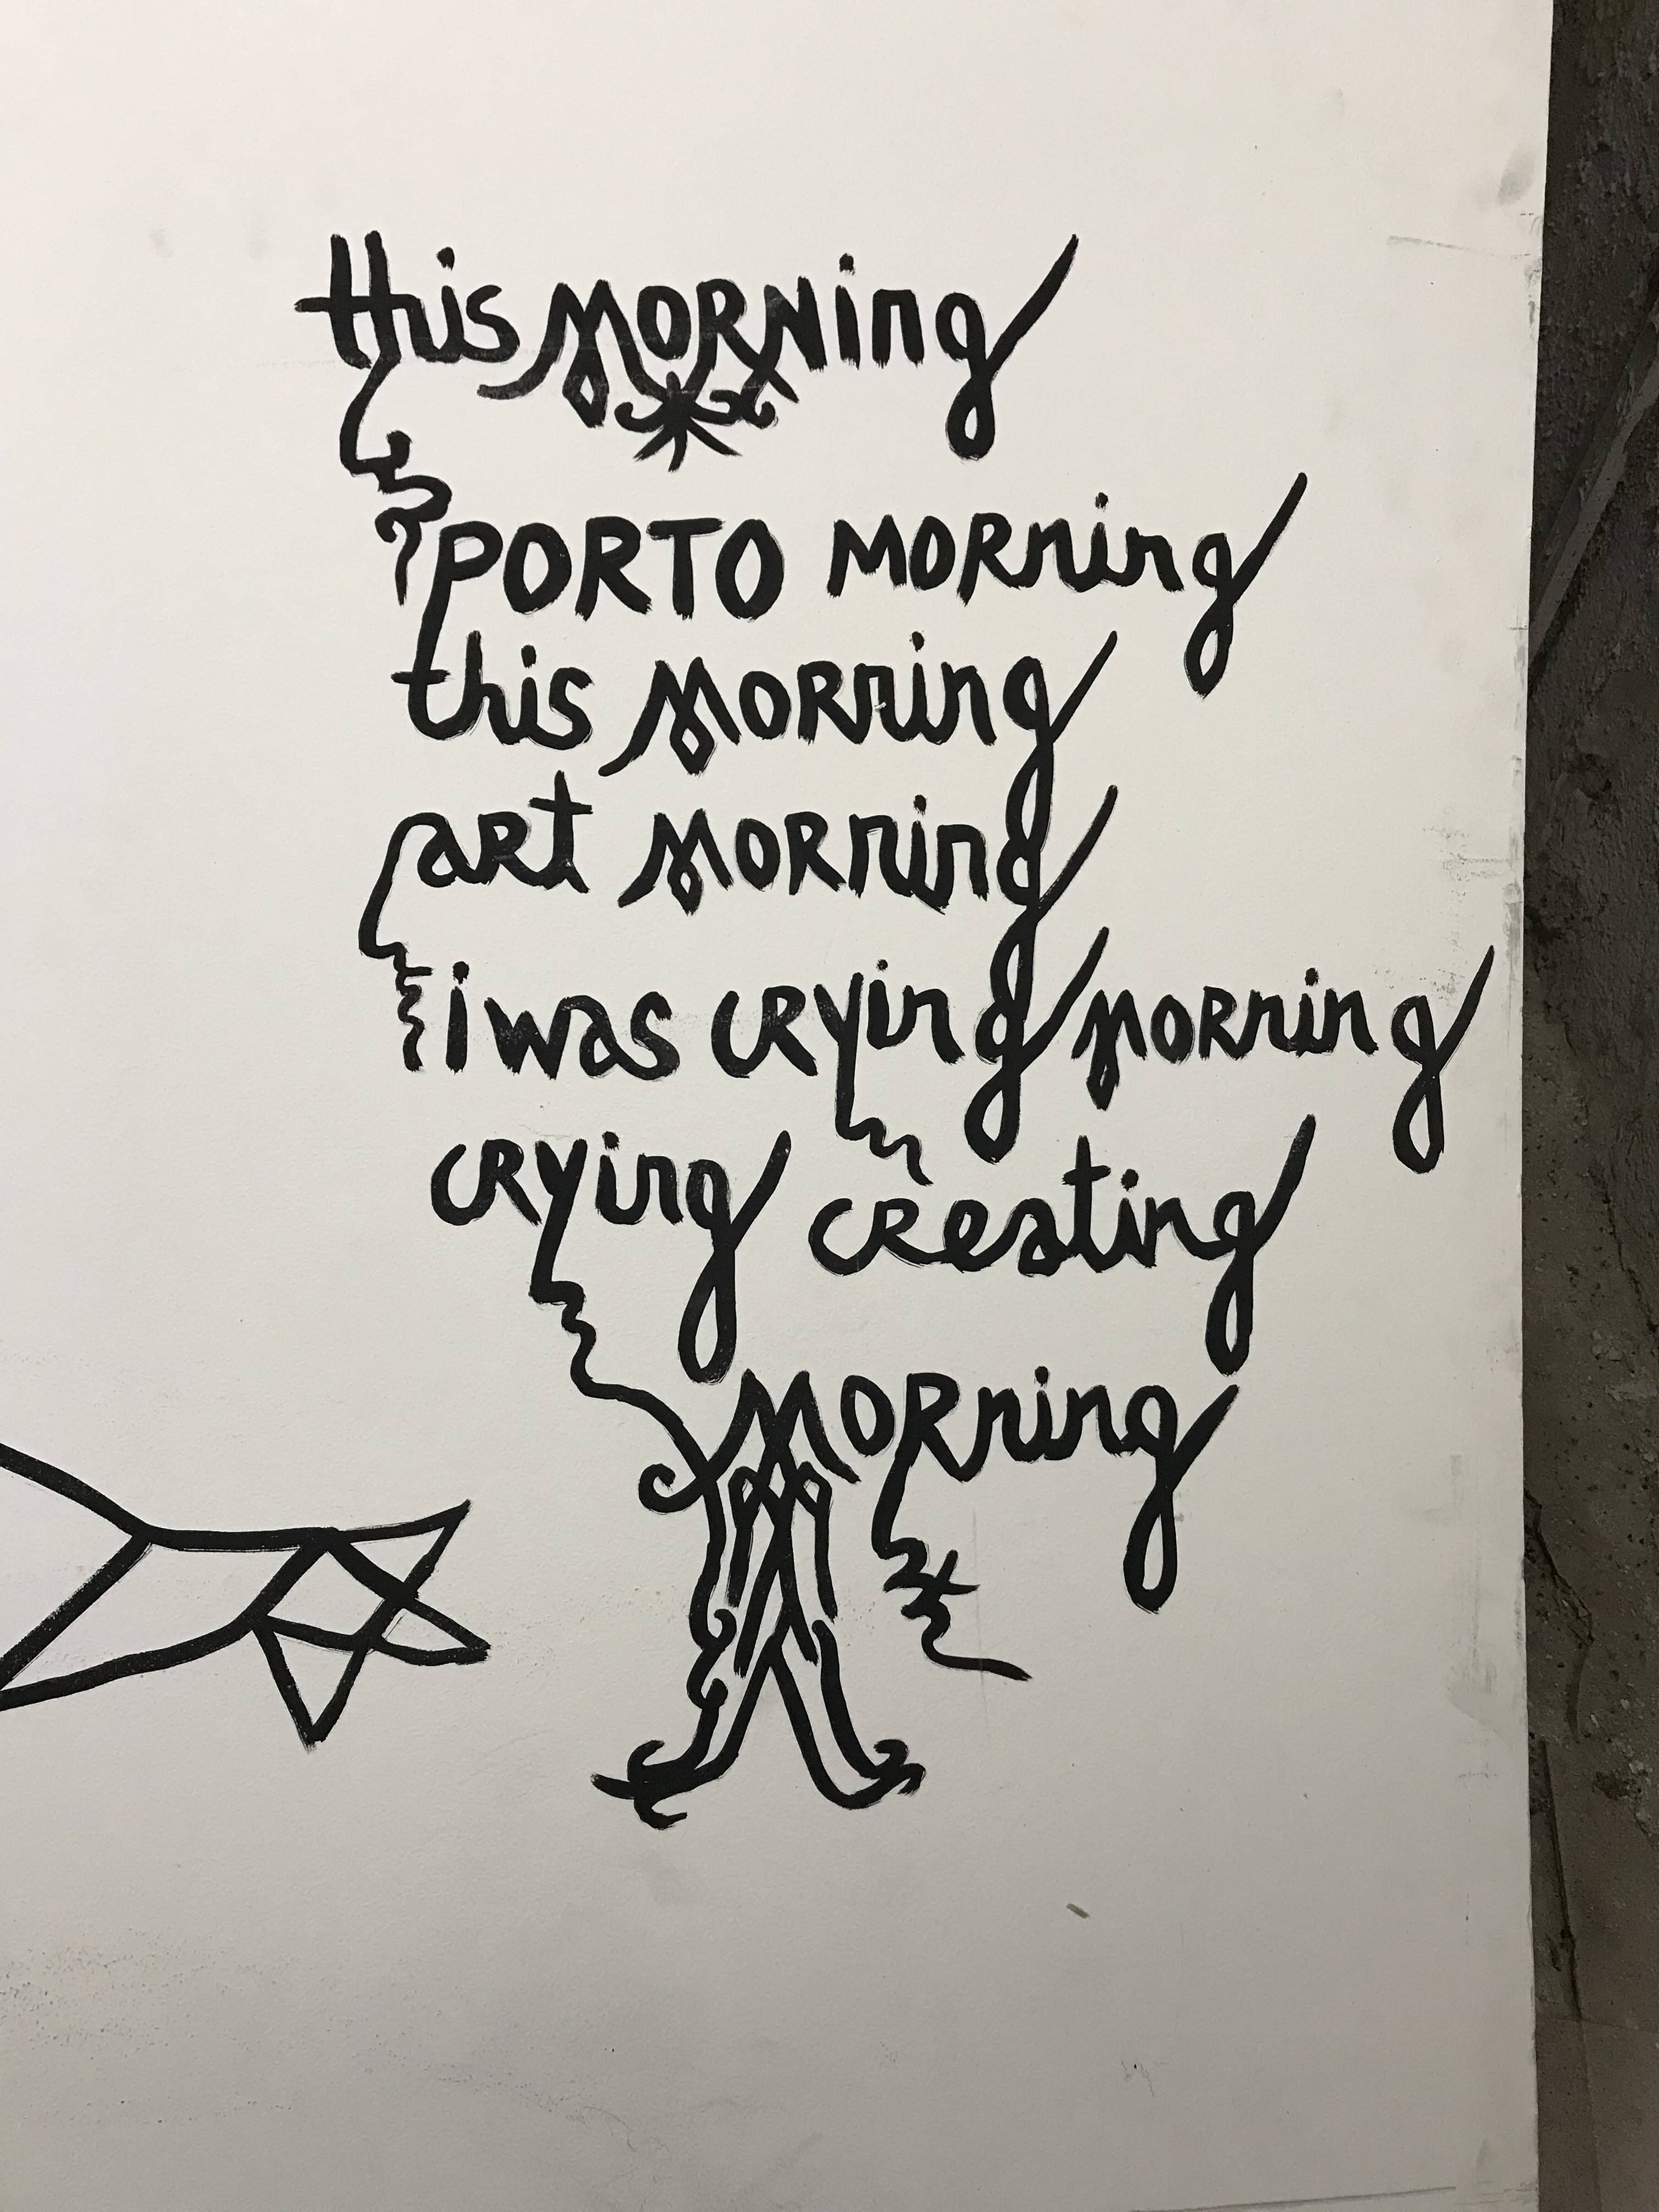 this MORNing
PORTO MORning
this MORning
aRt MORning
i was cRying MORning
cRying cReating
MORning